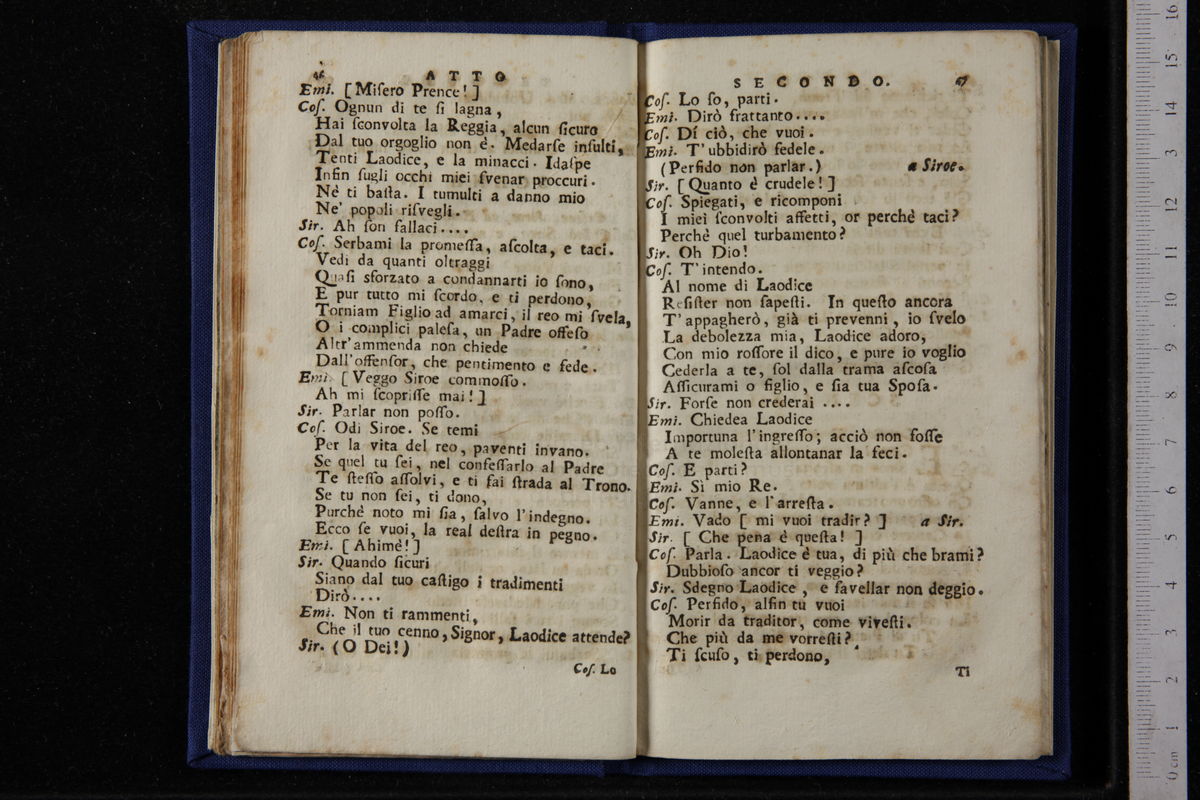 46 ATTO
Emi. [Miſero Prence!]
Coſ. Ognun di te ſi lagna,
Hai ſconvolta la Reggia, alcun ſicuro
Dal tuo orgoglio non è. Medarſe inſulti,
Tenti Laodice, e la minacci. Idaſpe
Infin ſugli occhi miei ſvenar proccuri.
Nè ti baſta. I tumulti a danno mio
Ne' popoli riſvegli.
Sir. Ah ſon fallaci....
Coſ. Serbami la promeſſa, aſcolta, e taci.
Vedi da quanti oltraggi
Quaſi sforzato a condannarti io ſono,
E pur tutto mi ſcordo, e ti perdono,
Torniam Figlio ad amarci, il reo mi ſvela,
O i complici paleſa, un Padre offeſo
Altr'ammenda non chiede
Dall'offenſor, che pentimento e fede.
Emi. [Veggo Siroe commoſſo.
Ah mi ſcopriſſe mai!]
Sir. Parlar non poſſo.
Coſ. Odi Siroe. Se temi
Per la vita del reo, paventi invano.
Se quel tu ſei, nel confeſſarlo al Padre
Te ſteſſo aſſolvi, e ti fai ſtrada al Trono.
Se tu non ſei, ti dono,
Purchè noto mi ſia, ſalvo l'indegno.
Ecco ſe vuoi, la real deſtra in pegno.
Emi. [Ahimè!]
Sir. Quando ſicuri
Siano dal tuo caſtigo i tradimenti
Dirò....
Emi. Non ti rammenti,
Che il tuo cenno, Signor, Laodice attende?
Sir. (O Dei!)
Coſ. Lo
SECONDO. 47
Coſ. Lo ſo, parti.
Emi. Dirò frattanto....
Coſ. Dí ciò, che vuoi.
Emi. T'ubbidirò fedele.
(Perfido non parlar.) a Siroe.
Sir. [Quanto è crudele!]
Coſ. Spiegati, e ricomponi
I miei ſconvolti affetti, or perchè taci?
Perchè quel turbamento?
Sir. Oh Dio!
Coſ. T'intendo.
Al nome di Laodice
Reſiſter non ſapeſti. In queſto ancora
T'appagherò, già ti prevenni, io ſvelo
La debolezza mia, Laodice adoro,
Con mio roſſore il dico, e pure io voglio
Cederla a te, ſol dalla trama aſcoſa
Aſſicurami o figlio, e ſia tua Spoſa.
Sir. Forſe non crederai ....
Emi. Chiedea Laodice
Importuna l'ingreſſo; acciò non foſſe
A te moleſta allontanar la feci.
Coſ. E partì?
Emi. Sì mio Re.
Coſ. Vanne, e l'arreſta.
Emi. Vado [ mi vuoi tradir? ] a Sir.
Sir. [ Che pena è queſta! ]
Coſ. Parla. Laodice è tua, di più che brami?
Dubbioſo ancor ti veggio?
Sir. Sdegno Laodice, e favellar non deggio.
Coſ. Perfido, alfin tu vuoi
Morir da traditor, come viveſti.
Che più da me vorreſti?
Ti ſcuſo, ti perdono,
Ti
0 cm 1 2 3 4 5 6 7 8 9 10 11 12 3 14 15 16